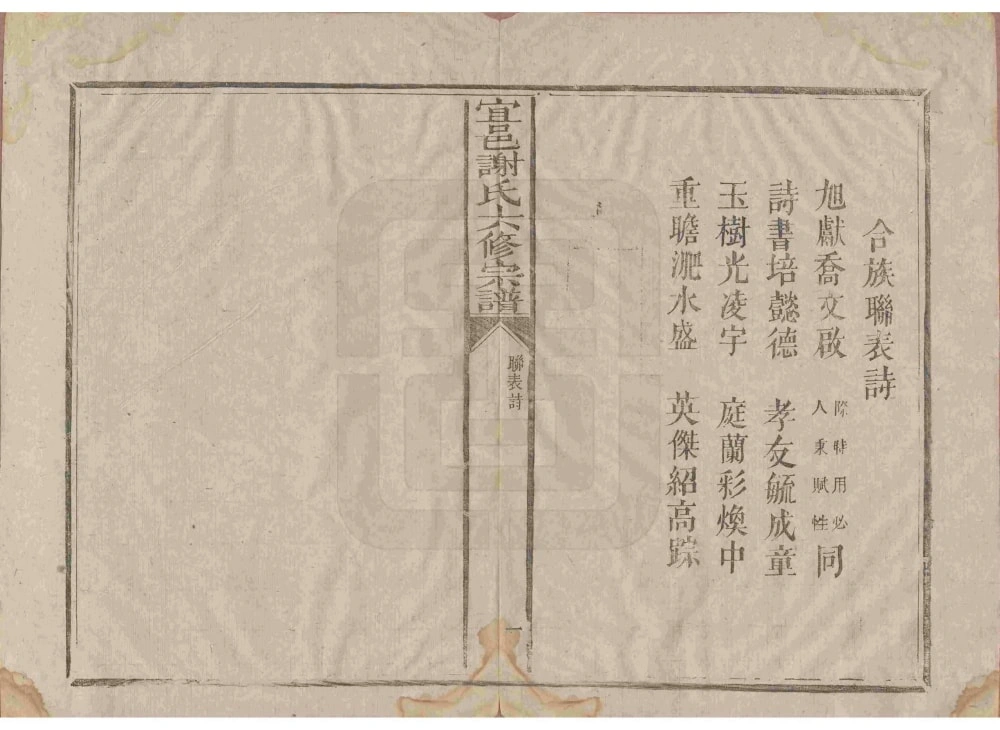 合族聯表詩
旭獻喬文啟 際時用必 人秉賦性 同
詩書培懿德 孝友毓成童
玉樹光凌宇 庭蘭彩煥中
重瞻淝水盛 英傑紹高踪
宜邑謝氏六修宗譜
聯表詩
一